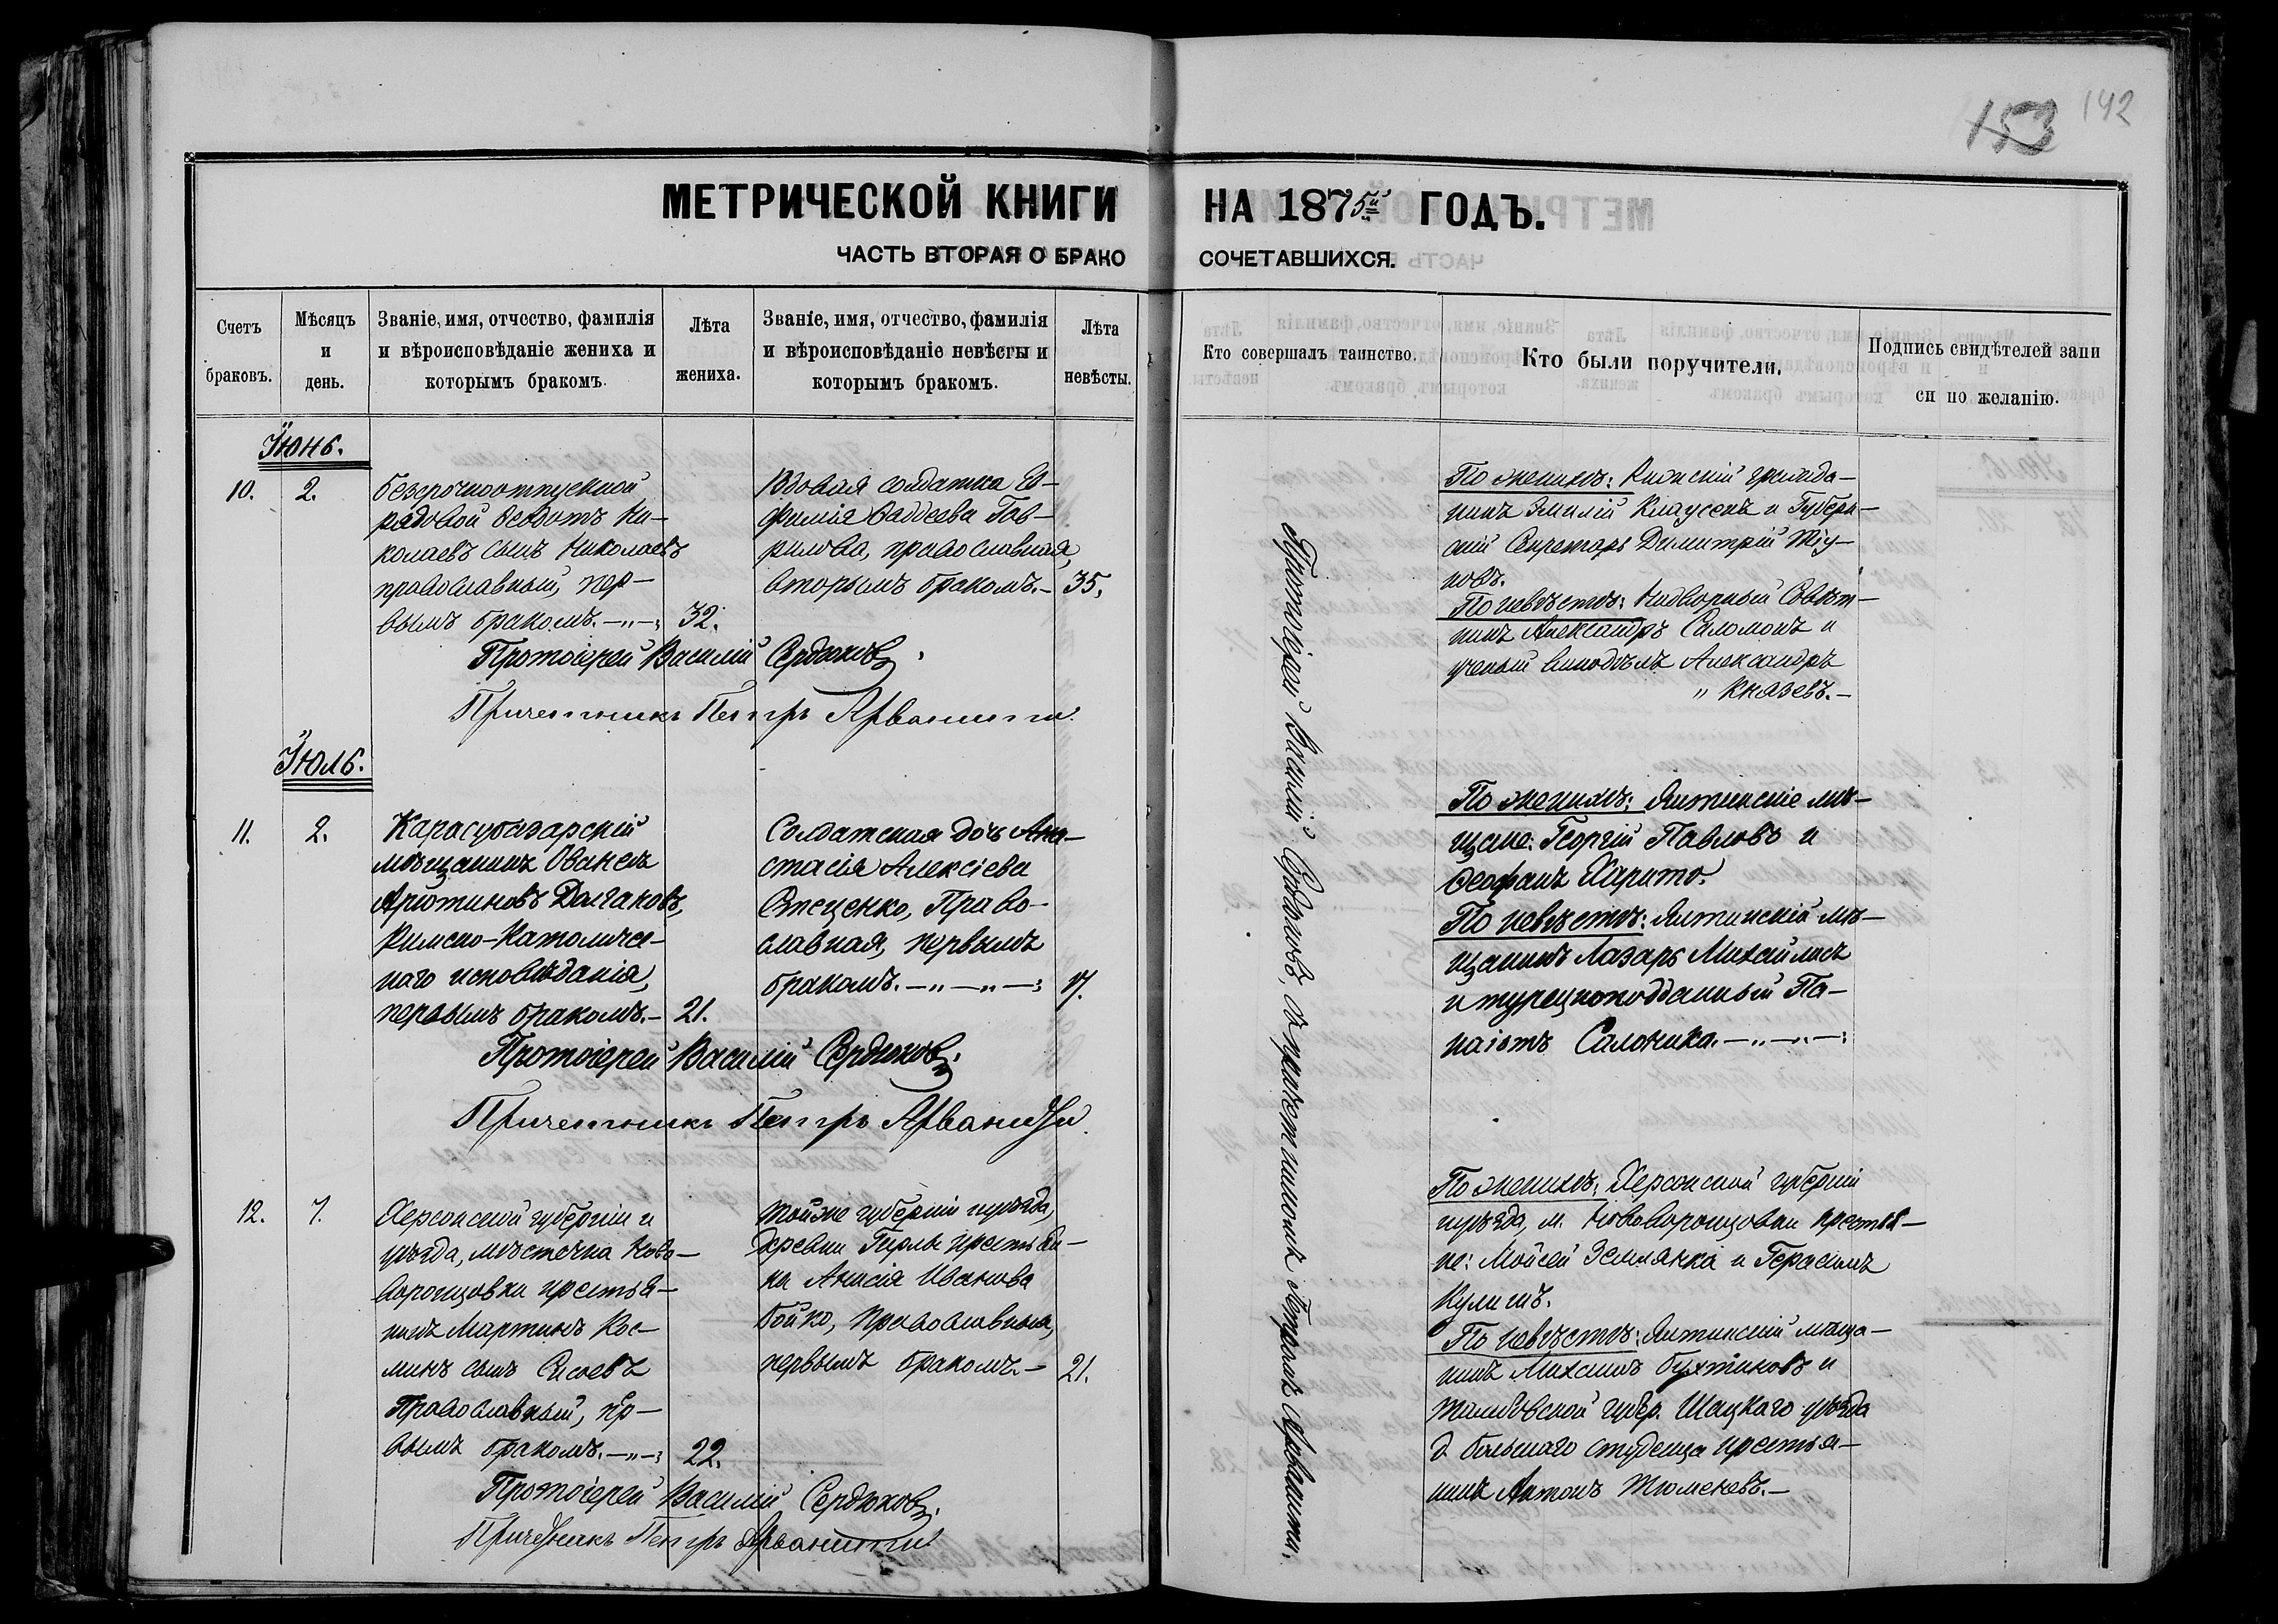 153 142
МЕТРИЧЕСКОЙ КНИГИ НА 1875й ГОДЪ.
ЧАСТЬ ВТОРАЯ О БРАКО СОЧЕТАВШИХСЯ.
Счетъ браковъ.
Мѣсяцъ и день.
Званіе, имя, отчество, фамилія
и вѣроисповѣданіе жениха и
которымъ бракомъ.
Лѣта жениха.
Званіе, имя, отчество, фамилія
и вѣроисповѣданіе невѣсты и
которымъ бракомъ.
Лѣта невѣсты.
Кто совершалъ таинство.
Кто были поручители.
Подпись свидѣтелей запи
си по желанію.
Іюнь.
10. 2.
Безсрочноотпускной
рядовой Ѳеодотъ Ни-
колаевъ сынъ Николаевъ
православный, пер-
вымъ бракомъ. 32.
Вдовая солдатка Ев-
фимія Ѳаддеева Гав-
рилова, православная,
вторымъ бракомъ. 35.
Протоіерей Василій Сердюковъ.
Причетникъ Петръ Арванити.
По женихѣ: Рижскій гражда-
нинъ Эмилій Клаусенъ и Губерн-
скій Секретарь Димитрій Тіу-
новъ.
По невѣстѣ: Надворный Совѣт-
никъ Александръ Саломонъ и
ученый винодѣлъ Александръ
Князевъ.
Іюль.
11. 2.
Карасубазарскій
мѣщанинъ Ованесъ
Арютиновъ Далгаковъ,
Римско-Католичес-
каго исповѣданія,
первымъ бракомъ. 21.
Солдатская дочь Ана-
стасія Алексіева
Стеценко, Право-
славная, первымъ
бракомъ. 17.
Протоіерей Василій Сердюковъ.
Причетникъ Петръ Арванити.
По женихѣ: Ялтинскіе мѣ-
щане: Георгій Павловъ и
Ѳеофанъ Харито.
По невѣстѣ: Ялтинскій мѣ-
щанинъ Лазарь Михайлисъ
и турецкоподданный Па-
наіотъ Салоника.
12. 7.
Херсонской губерніи и
уѣзда, мѣстечка Ново-
воронцовки крестья-
нинъ Мартинъ Кос-
минъ сынъ Сысоевъ
Православный, пер-
вымъ бракомъ. 22.
Тойже губерніи и уѣзда,
деревни Гирлы крестьян-
ка Анисія Иванова
Бойко, Православная,
первымъ бракомъ. 21.
Протоіерей Василій Сердюковъ.
Причетникъ Петръ Арванити.
По женихѣ: Херсонской губерніи
и уѣзда, м. Нововоронцовки крестья-
не: Мойсей Землянка и Герасимъ
Кулишъ.
По невѣстѣ: Ялтинскій мѣща-
нинъ Михаилъ Бухтіяновъ и
Тамбовской губер. Шацкаго уѣзда
д. Большаго студенца крестья-
нинъ Антонъ Тюменевъ.
Протоіерей Василій Сердюковъ, съ причетникомъ Петромъ Арванити.